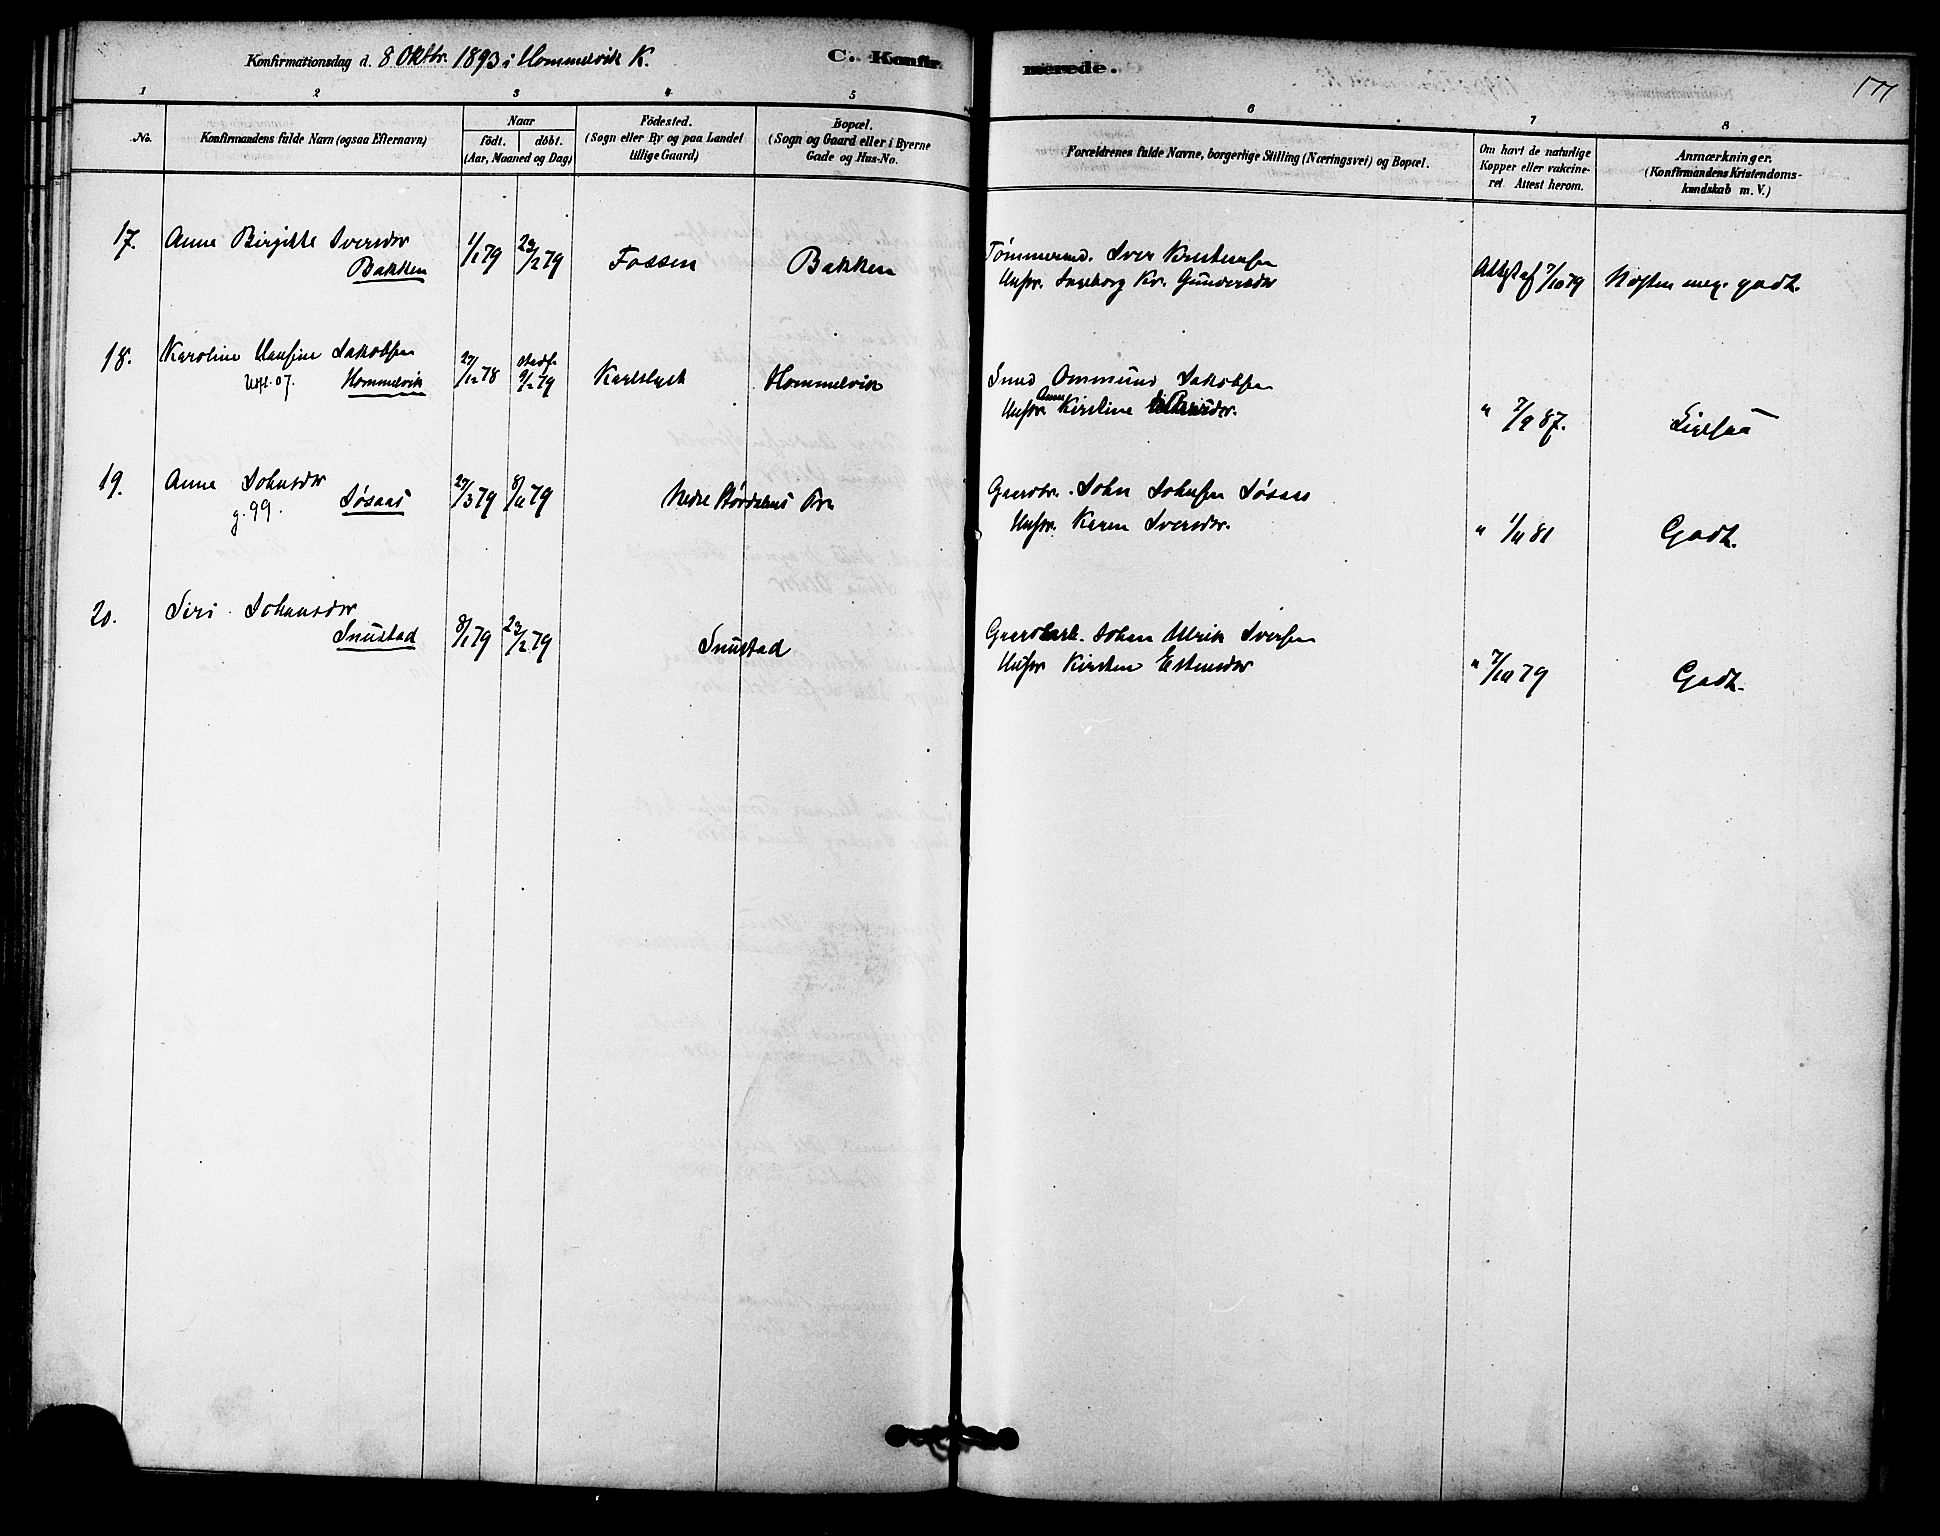 Konfirmationsdag d. 8 Oktbr. 1893 i Hommelvik K.
C. Konfirmerede.
177
1 2 3 4 5 6 7 8
No.
Konfirmandens fulde Navn (ogsaa Efternavn)
Naar
födt. döbt.
(Aar, Maaned og Dag)
Födested.
(Sogn eller By og paa Landet
tillige Gaard)
Bopæl.
(Sogn og Gaard eller i Byerne
Gade og Hus-No.
Forældrenes fulde Navne, borgerlige Stilling (Næringsvei) og Bopæl.
Om havt de naturlige
Kopper eller vakcine-
ret Attest herom.
Anmærkninger.
(Konfirmandens Kristendoms-
kundskab m. V.)
17. Anne Birgitte Iversdr
Bakken
1/1 79 23/2 79 Fossen Bakken
Tømmermd. Iver Kristensen
Husfr. Ingeborg Kr. Gundersdr
Attest af 7/10 79 Næsten meg. godt.
18. Karoline Hansine Jakobsen
Utfl. 07. Hommelvik
27/12 78 stadf. 9/2 79 Karlslyst Hommelvik
Smed Ommund Jakobsen
Husfr. Anne Kirstine
" 7/9 87. Ligesaa
19. Anne Johnsdr
g. 99. Søsaas
27/3 79 8/4 79 Nedre Stördalens Pr.
Gaardbr. John Johnsen Søsaas
Husfr. Karen Iversdr.
" 1/11 81 Godt.
20. Siri Johansdr
Snustad
8/1 79 23/2 79 Snustad
Gaardkarl. Johan Ulrik Iversen
Husfr Kirsten Estensdr
" 7/10 79 Godt.